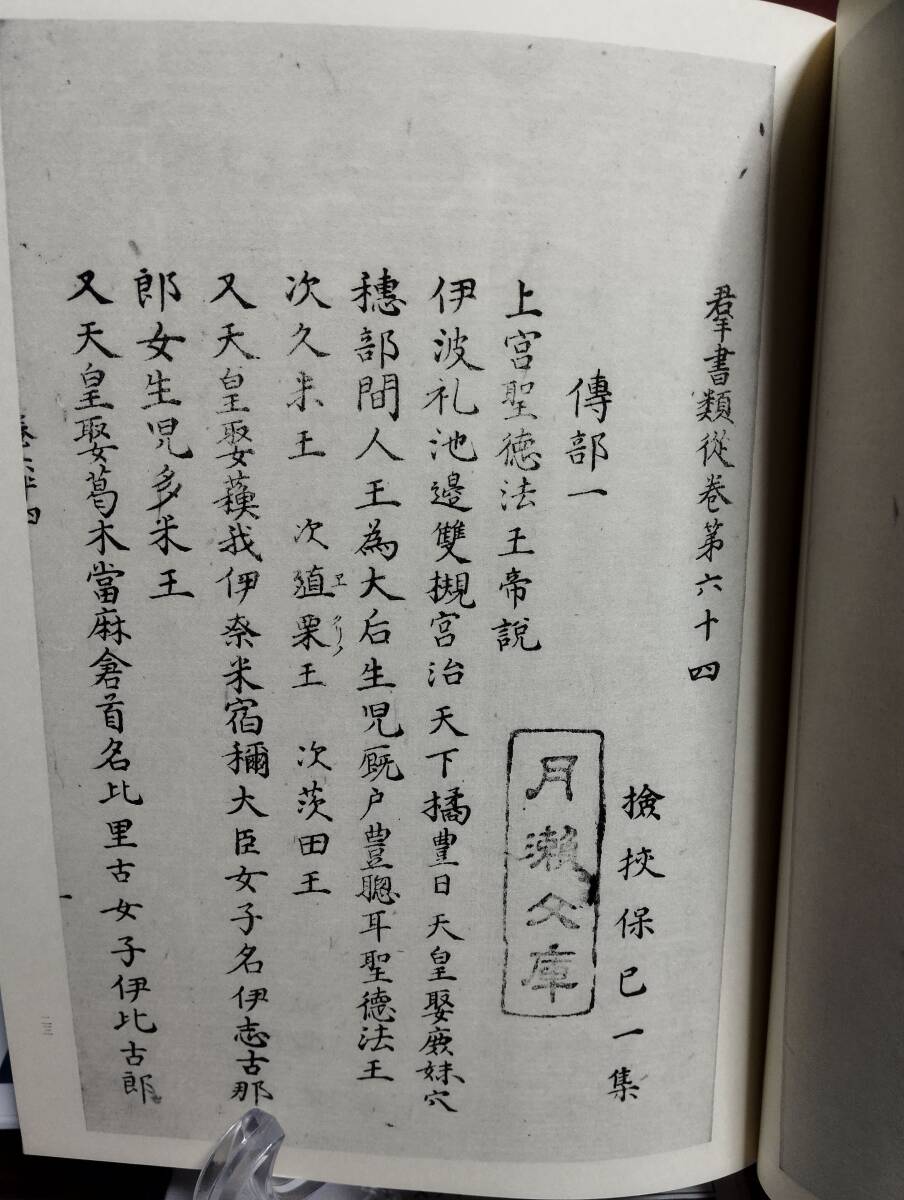 羣書類從卷第六十四
撿挍保己一集
傳部一
上宮聖德法王帝說
伊波礼池邊雙槻宮治天下橘豊日天皇娶庶妹穴
穗部間人王為大后生児厩户豊聰耳聖德法王
次久米王 次殖栗王 次茨田王
ヱ クリノ
又天皇娶蘓我伊奈米宿祢大臣女子名伊志古那
郎女生児多米王
又天皇娶葛木當麻倉首名比里古女子伊比古郎
月瀬文庫
二三